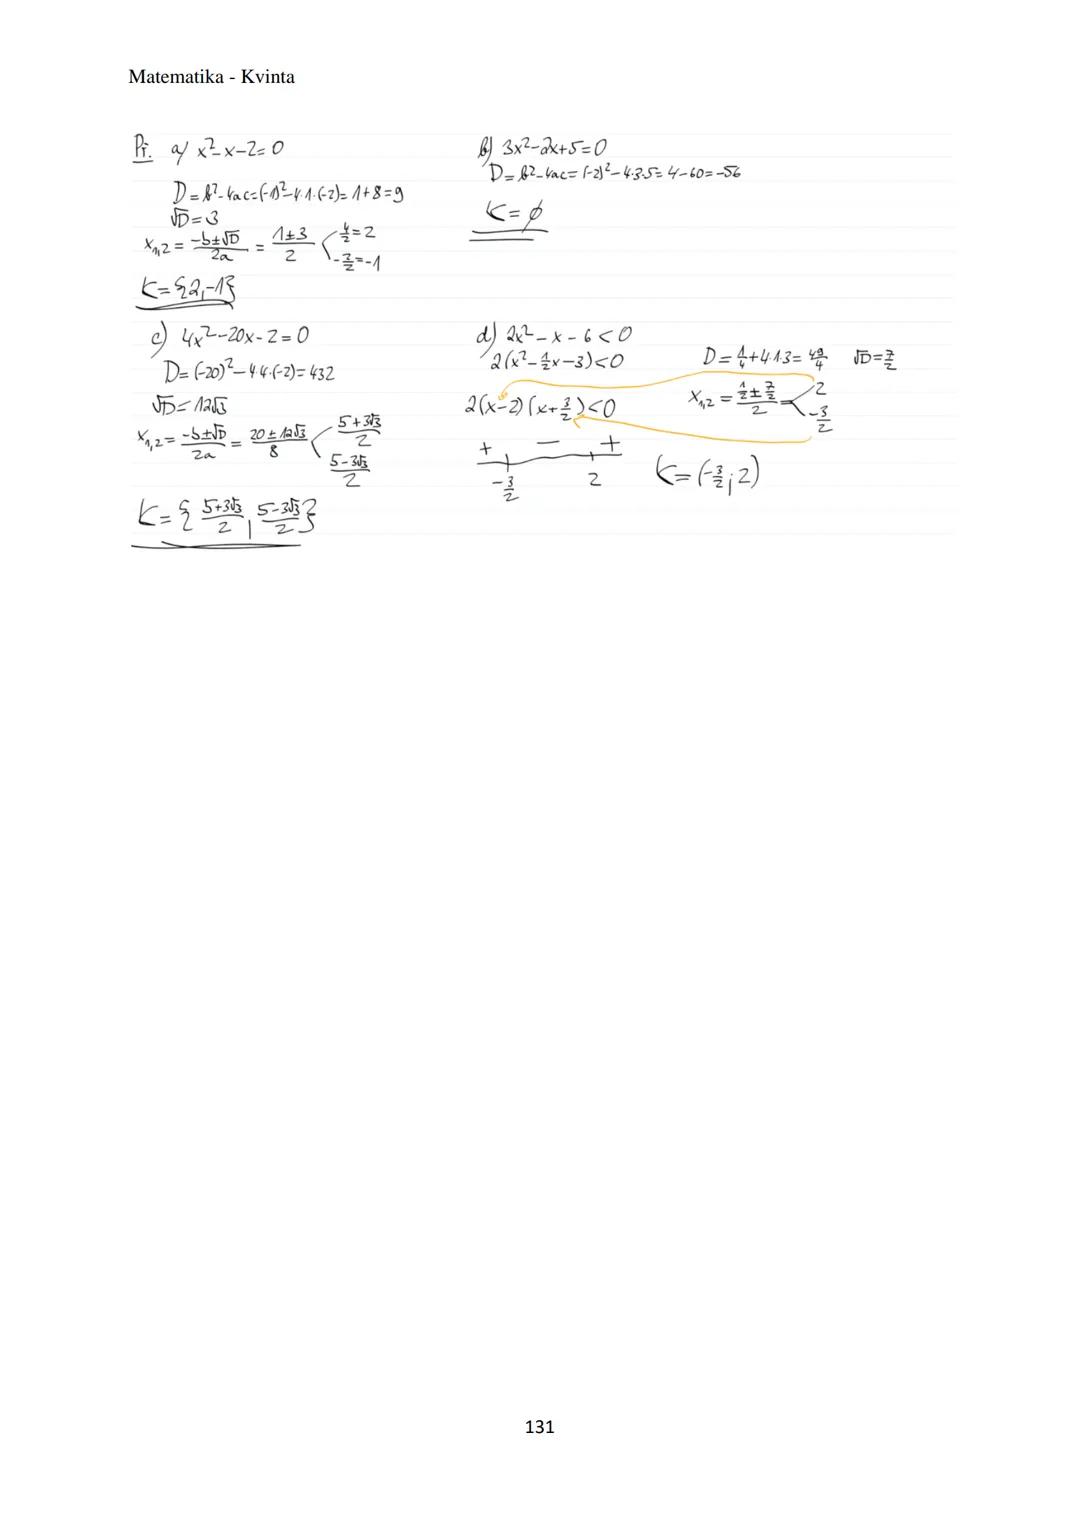 Matematika - Kvinta
Př. a) x²-x-2=0
D=b²-4ac=(-1)²-4·1·(-2)=1+8=9
√D=3
x₁,₂ = (-b±√D)/2a = (1±3)/2 < 4/2=2
-2/2=-1
K={2,-1}
b) 3x²-2x+5=0
D=b²-4ac=(-2)²-4·3·5=4-60=-56
K=∅
c) 4x²-20x-2=0
D=(-20)²-4·4·(-2)=432
√D=12√3
x₁,₂ = (-b±√D)/2a = (20±12√3)/8 < (5+3√3)/2
(5-3√3)/2
K={(5+3√3)/2, (5-3√3)/2}
d) 2x²-x-6<0
2(x²-1/2x-3)<0
D=1/4+4·1·3=49/4 √D=7/2
2(x-2)(x+3/2)<0
x₁,₂ = (1/2±7/2)/2 = < 2
-3/2
+ - +
-3/2 2
K=(-3/2;2)
131